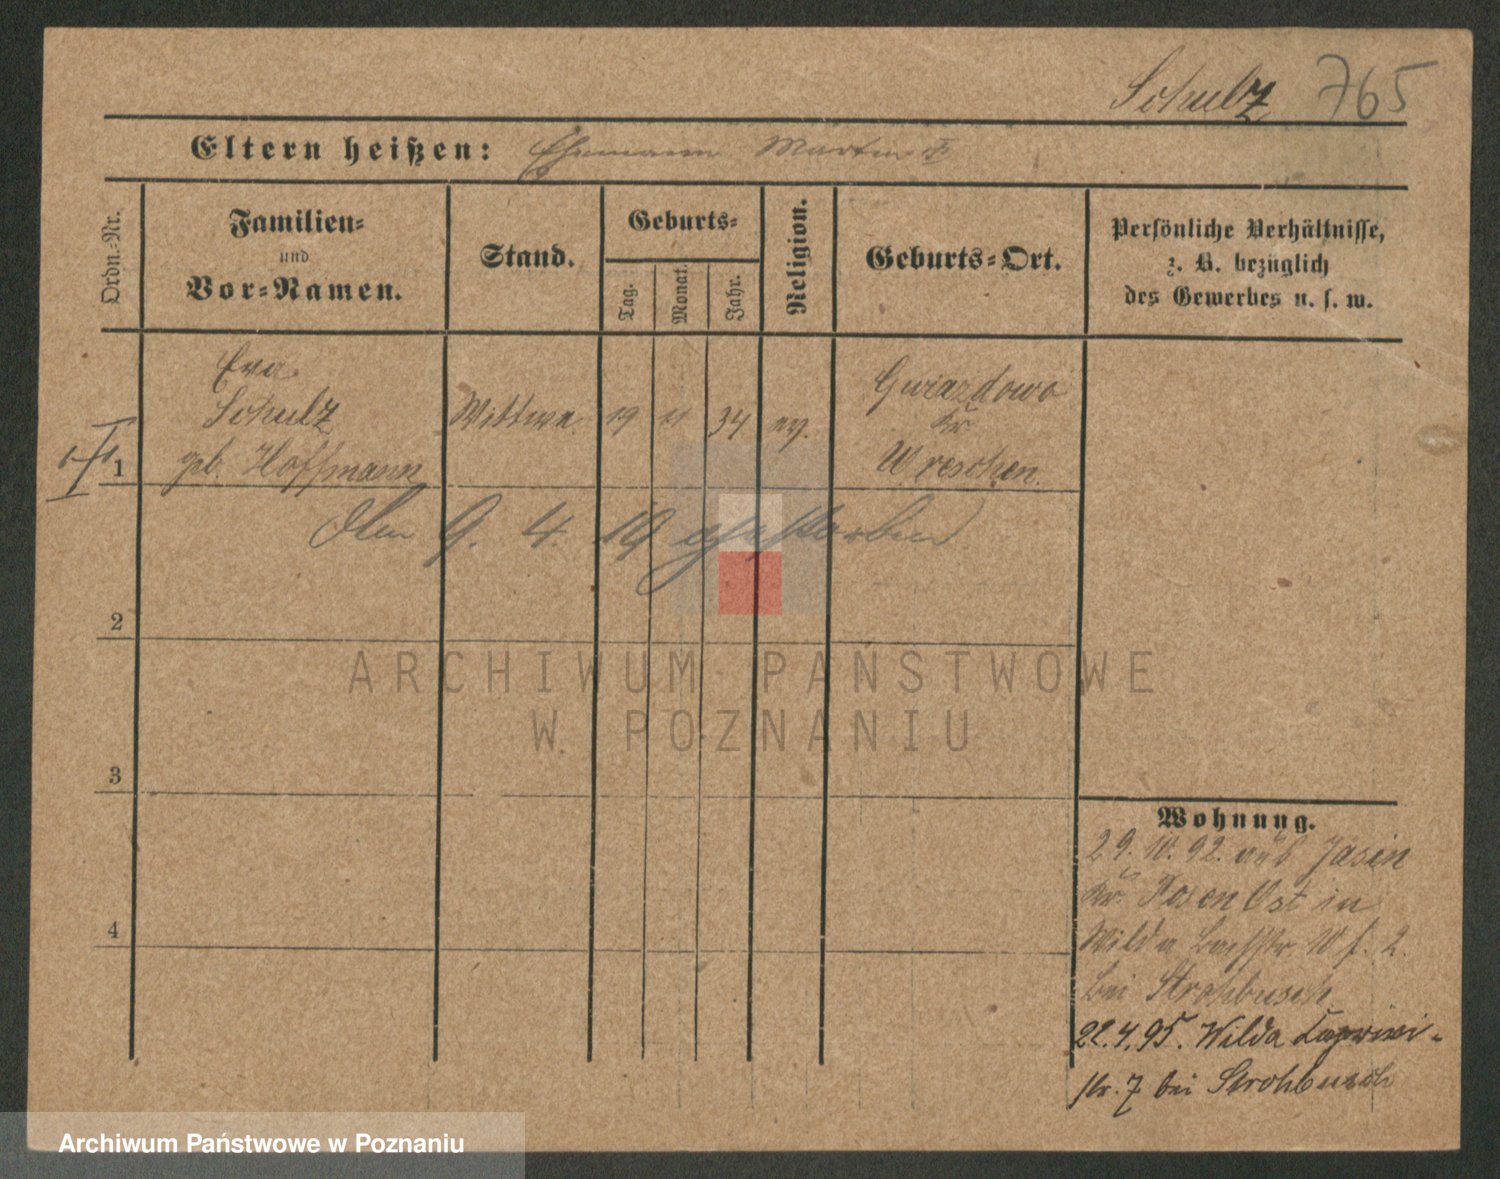 Schulz 765
Eltern heißen: Ehemann Martin
Ordn.-Nr.
Familien-
und
Vor-Namen.
Stand.
Geburts-
Tag.
Monat.
Jahr.
Religion.
Geburts-Ort.
Persönliche Verhältnisse,
z. B. bezüglich
des Gewerbes u. s. w.
Eva
Schulz
geb. Hoffmann
1
Wittwe
19
11
34
ev.
Gwiazdowo
Kr
Wreschen.
Am 9. 4. 19 gestorben
2
3
4
Wohnung.
29. 10. 92. aus Jasin
Kr. Posen Ost in
Wilda 2.
bei Strohbusch
22.4.95. Wilda Caprivi-
str. 7 bei Strohbusch
ARCHIWUM PAŃSTWOWE
W POZNANIU
Archiwum Państwowe w Poznaniu